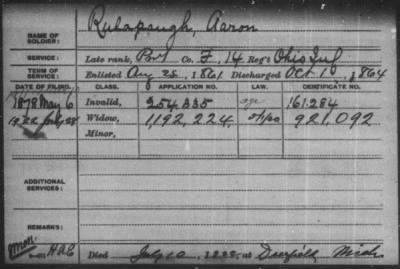 NAME OF SOLDIER: Rulapaugh, Aaron
SERVICE: Late rank, Pvt Co. F, 14 Reg't Ohio Inf
TERM OF SERVICE: Enlisted Aug 28, 1861 Discharged Oct 1, 1864
DATE OF FILING. CLASS. APPLICATION NO. LAW. CERTIFICATE NO.
1878 May 6 Invalid, 254,335 161.284
July 28 Widow, 1,192,224 921,092
Minor,
ADDITIONAL SERVICES:
REMARKS:
Died July 1922, at Deerfield Mich